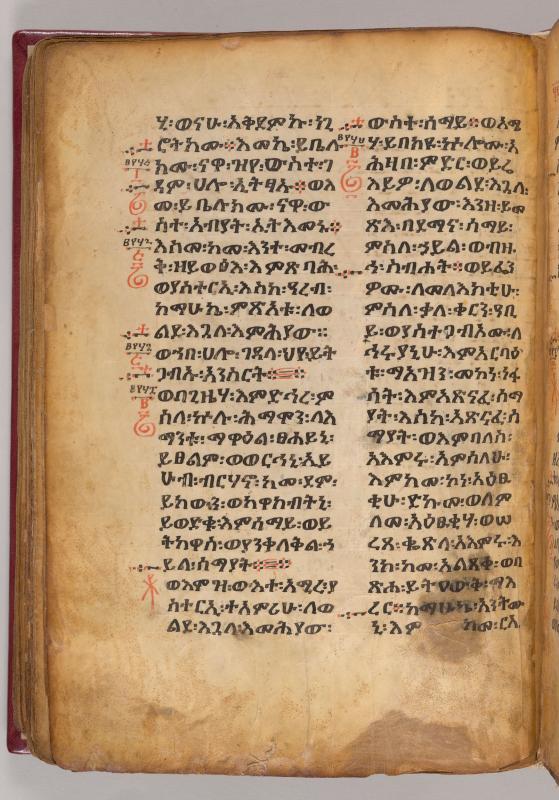 ሂ፡ወናሁ፡አቅደምኩ፡ነጊ
ሮትክሙ፨እመኬ፡ይቤሉ
ክሙ፡ናዋ፡ዝየ፡ውስተ፡ገ
ዳም፡ሀሎ፡ኢትፃኡ፨ወእ
መ፡ይቤሉክሙ፡ናዋ፡ው
ስተ፡አብያት፡ኢትእመኑ፨
እስመ፡ከመ፡እንተ፡መብረ
ቅ፡ዘይወፅእ፡እምጽባሕ፡
ወያስተርኢ፡እስከ፡ዓረብ፡
ከማሁኬ፡ምጽአቱ፡ለወ
ልደ፡እጓለ፡እምሕያው።
ወኀበ፡ሀሎ፡ገደላ፡ህየ፡ይት
ጋብኡ፡አንስርት፨
ወበጊዜሃ፡እምድኅረ፡ም
ስለ፡ኵሉ፡ሕማሞን፡ለእ
ማንቱ፡ማዋዕል፡ፀሐይኒ፡
ይፀልም፡ወወርኅኒ፡ኢይ
ሁብ፡ብርሃኖ፡ከመ፡ደም፡
ይከውን፡ወከዋክብትኒ፡
ይወድቁ፡እምሰማይ፡ወይ
ትከዋስ፡ወያንቀለቅል፡ኀ
ይለ፡ሰማያት፨
ወእምዝ፡ውእተ፡አሚረ፡ያ
ስተርኢ፡ተአምሪሁ፡ለወ
ልደ፡እጓለ፡እመሕያው፡
ውስተ፡ሰማይ፨ወአሜ
ሃ፡ይበክዩ፡ኵሎሙ፡አ
ሕዛበ፡ምድር፡ወይሬ
እይዎ፡ለወልደ፡እጓለ፡
እመሕያው፡እንዘ፡ይመ
ጽእ፡በደመና፡ሰማይ፡
ምስለ፡ኃይል፡ወብዙ
ኅ፡ስብሐት፨ወይፌን
ዎሙ፡ለመላእክቲሁ፡
ምስለ፡ቃለ፡ቀርን፡ዓቢ
ይ፡ወያስተጋብእሙ፡ለ
ኅሩያኒሁ፡እምአርባዕ
ቱ፡ማእዝን፡መከነ፡ነፋ
ሳት፡እምአጽናፈ፡ሰማ
ያት፡እስከ፡አጽናፈ፡ሰ
ማያት፡ወእምበለስ፡
አእምሩ፡አምሳለሁ፡
እምከመ፡ኮነ፡አዕፁ
ቂሁ፡ድኩመ፡ወለም
ለመ፡አዕፁቂሃ፡ወሠ
ረጸ፡ቈጽላ፡አእምሩ፡እ
ንከ፡ከመ፡አልጸቀ፡ወበ
ጽሐ፡ይትዐወቅ፡ማእ
ረር፨ከማሁኬ፡አንትሙ
ኒ፡እም ከመ፡ርኢ